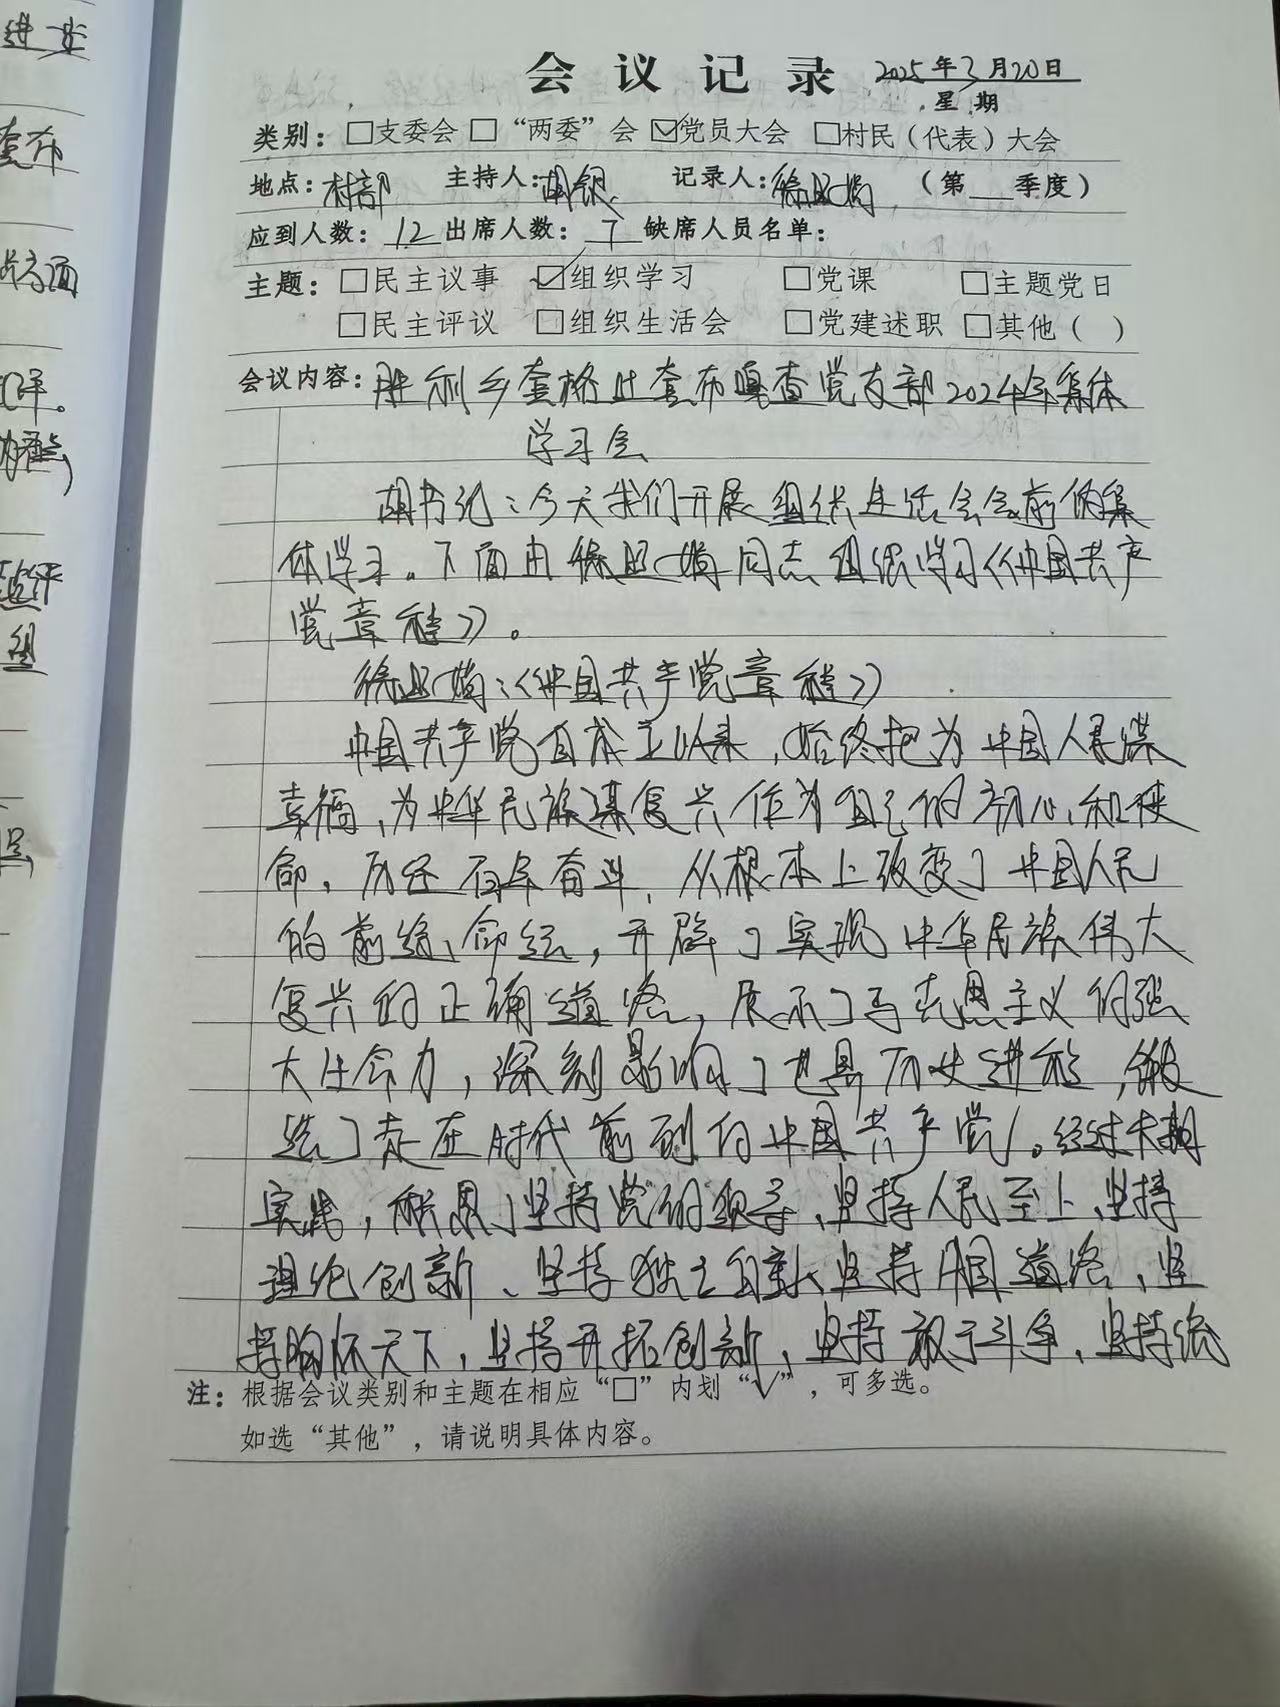 会议记录 2025年3月20日
星期
类别：□支委会 □“两委”会 ☑党员大会 □村民（代表）大会
地点：村部 主持人：胡银 记录人：徐 娟 （第 季度）
应到人数：12 出席人数：7 缺席人员名单：
主题：□民主议事 ☑组织学习 □党课 □主题党日
□民主评议 □组织生活会 □党建述职 □其他（ ）
会议内容：胜利乡套格吐套布嘎查党支部2024年集体
学习会
胡书记：今天我们开展组织生活会会前的集
体学习。下面由徐 娟同志组织学习《中国共产
党章程》。
徐 娟：《中国共产党章程》
中国共产党自成立以来，始终把为中国人民谋
幸福、为中华民族谋复兴作为自己的初心和使
命，历经百年奋斗，从根本上改变了中国人民
的前途命运，开辟了实现中华民族伟大
复兴的正确道路，展示了马克思主义的强
大生命力，深刻影响了世界历史进程，锻
造了走在时代前列的中国共产党。经过长期
实践，积累了坚持党的领导、坚持人民至上、坚持
理论创新、坚持独立自主、坚持中国道路、坚
持胸怀天下、坚持开拓创新、坚持敢于斗争、坚持统
注：根据会议类别和主题在相应“□”内划“√”，可多选。
如选“其他”，请说明具体内容。
进
套布
方面
组